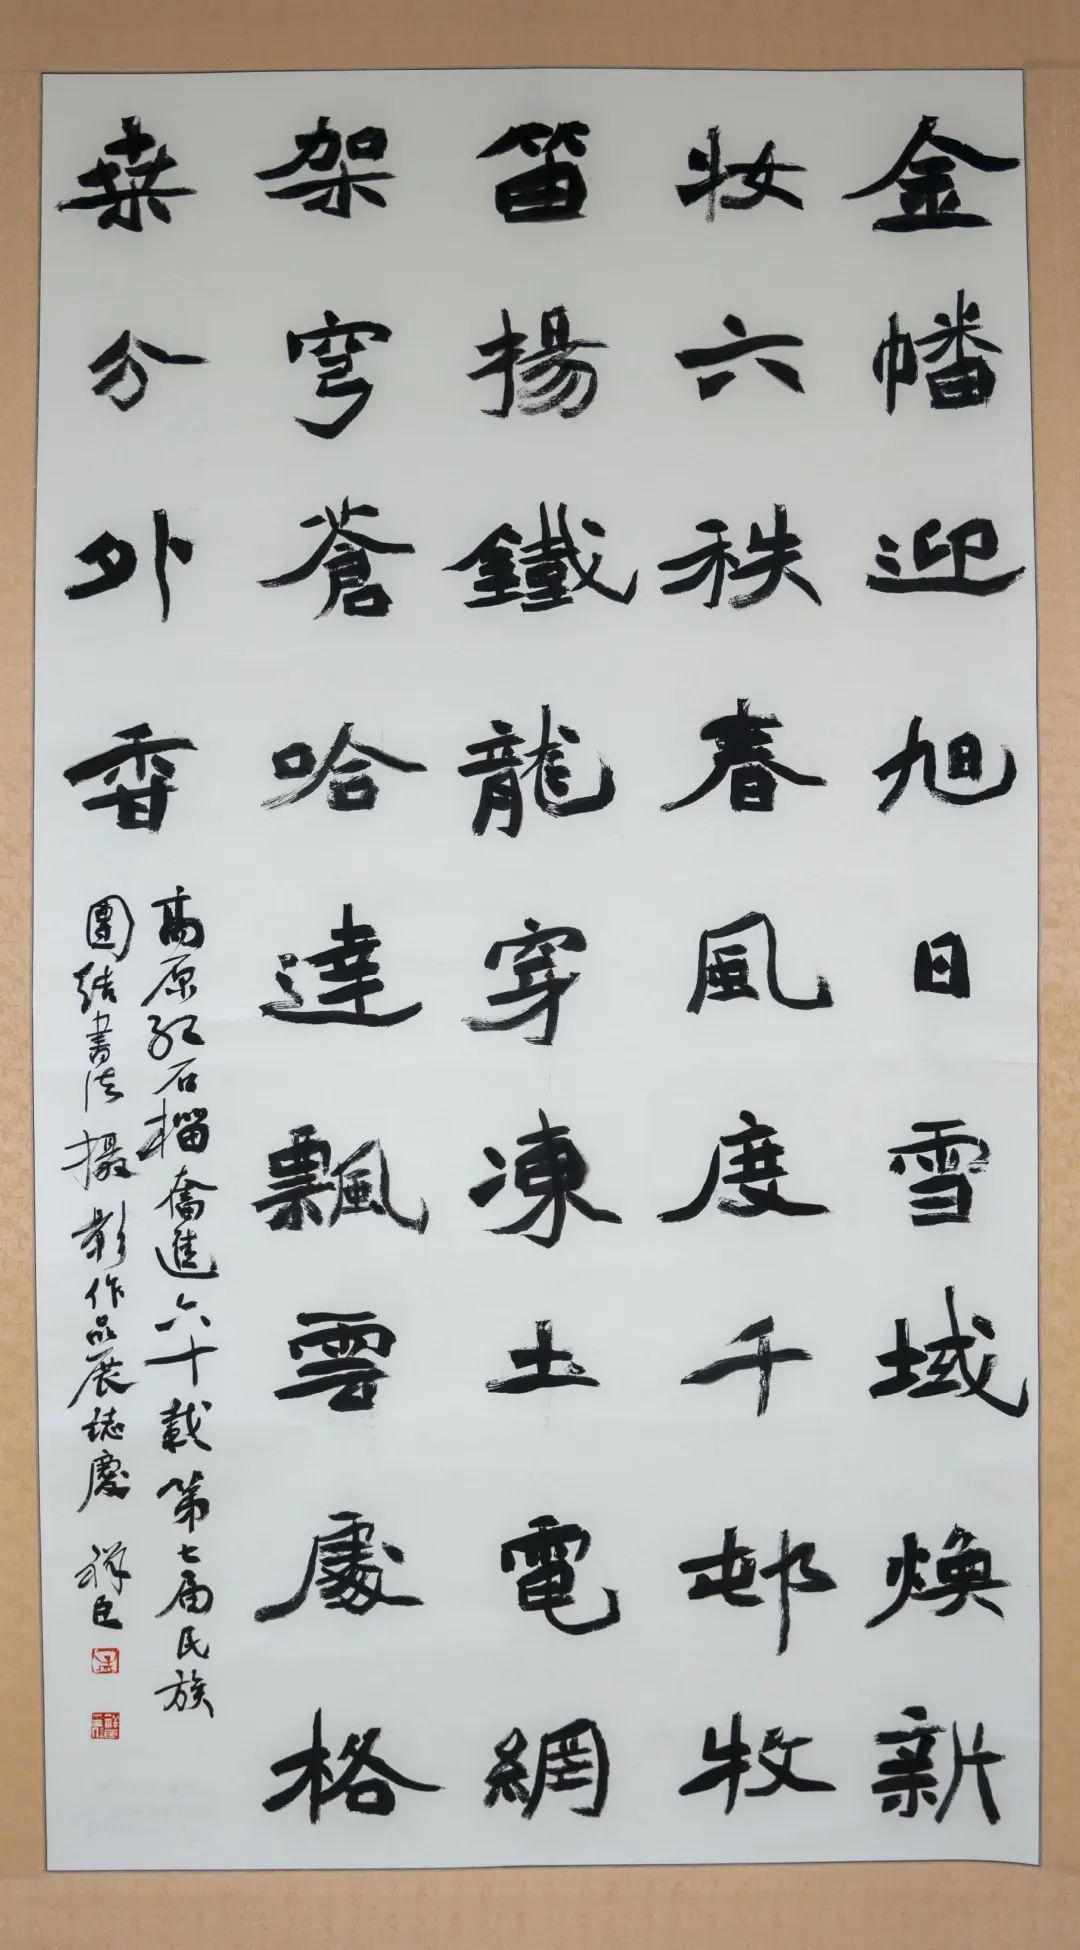 金幡迎旭日雪域煥新
妝六秩春風度千邨牧
笛揚鐵龍穿凍土電網
架穹蒼哈達飄雲處格
桒分外香
高原紅石榴奮進六十載第七届民族
團結書法攝影作品展誌慶 祥臣